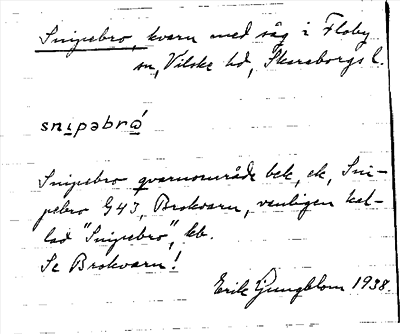 Snipebro, kvarn med såg i Floby
sn, Vilske hd, Skaraborgs l.
snipəbrώ
Snipebro qvarnområde bek, ek, Sni-
pebro G43, Brokvarn, vanligen kal-
lad "Snipebro", kb.
Se Brokvarn!
Erik Ljungblom 1938.